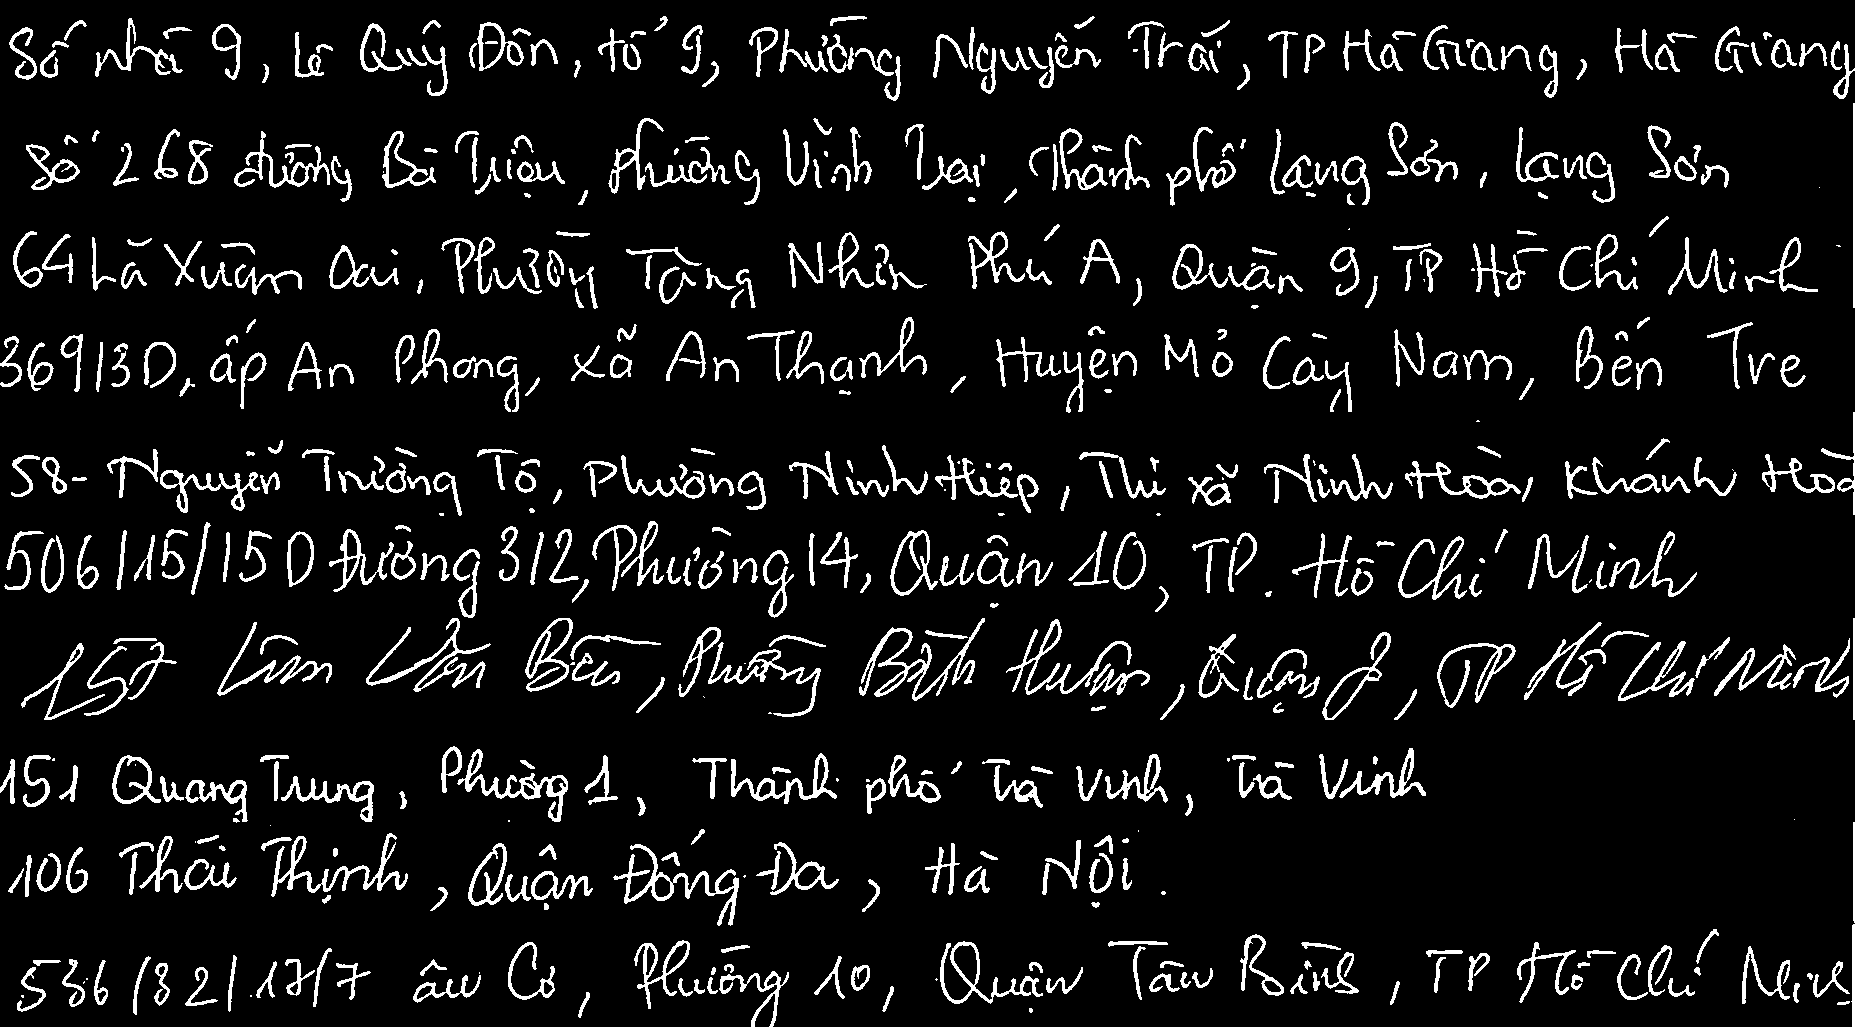 Số nhà 9, Lê Quý Đôn, tổ 9, Phường Nguyễn Trãi, TP Hà Giang, Hà Giang
Số 268 đường Bà Triệu, phường Vĩnh Trại, Thành phố Lạng Sơn, Lạng Sơn
64 Lã Xuân Oai, Phường Tăng Nhơn Phú A, Quận 9, TP Hồ Chí Minh
369/3D, ấp An Phong, xã An Thạnh, Huyện Mỏ Cày Nam, Bến Tre
58- Nguyễn Trường Tộ, Phường Ninh Hiệp, Thị xã Ninh Hòa, Khánh Hòa
506/15/15D Đường 3/2, Phường 14, Quận 10, TP. Hồ Chí Minh
157 Lâm Văn Bền, Phường Bình Thuận, Quận 7, TP Hồ Chí Minh
151 Quang Trung, Phường 1, Thành phố Trà Vinh, Trà Vinh
106 Thái Thịnh, Quận Đống Đa, Hà Nội.
536/82/17/7 Âu Cơ, Phường 10, Quận Tân Bình, TP Hồ Chí Minh